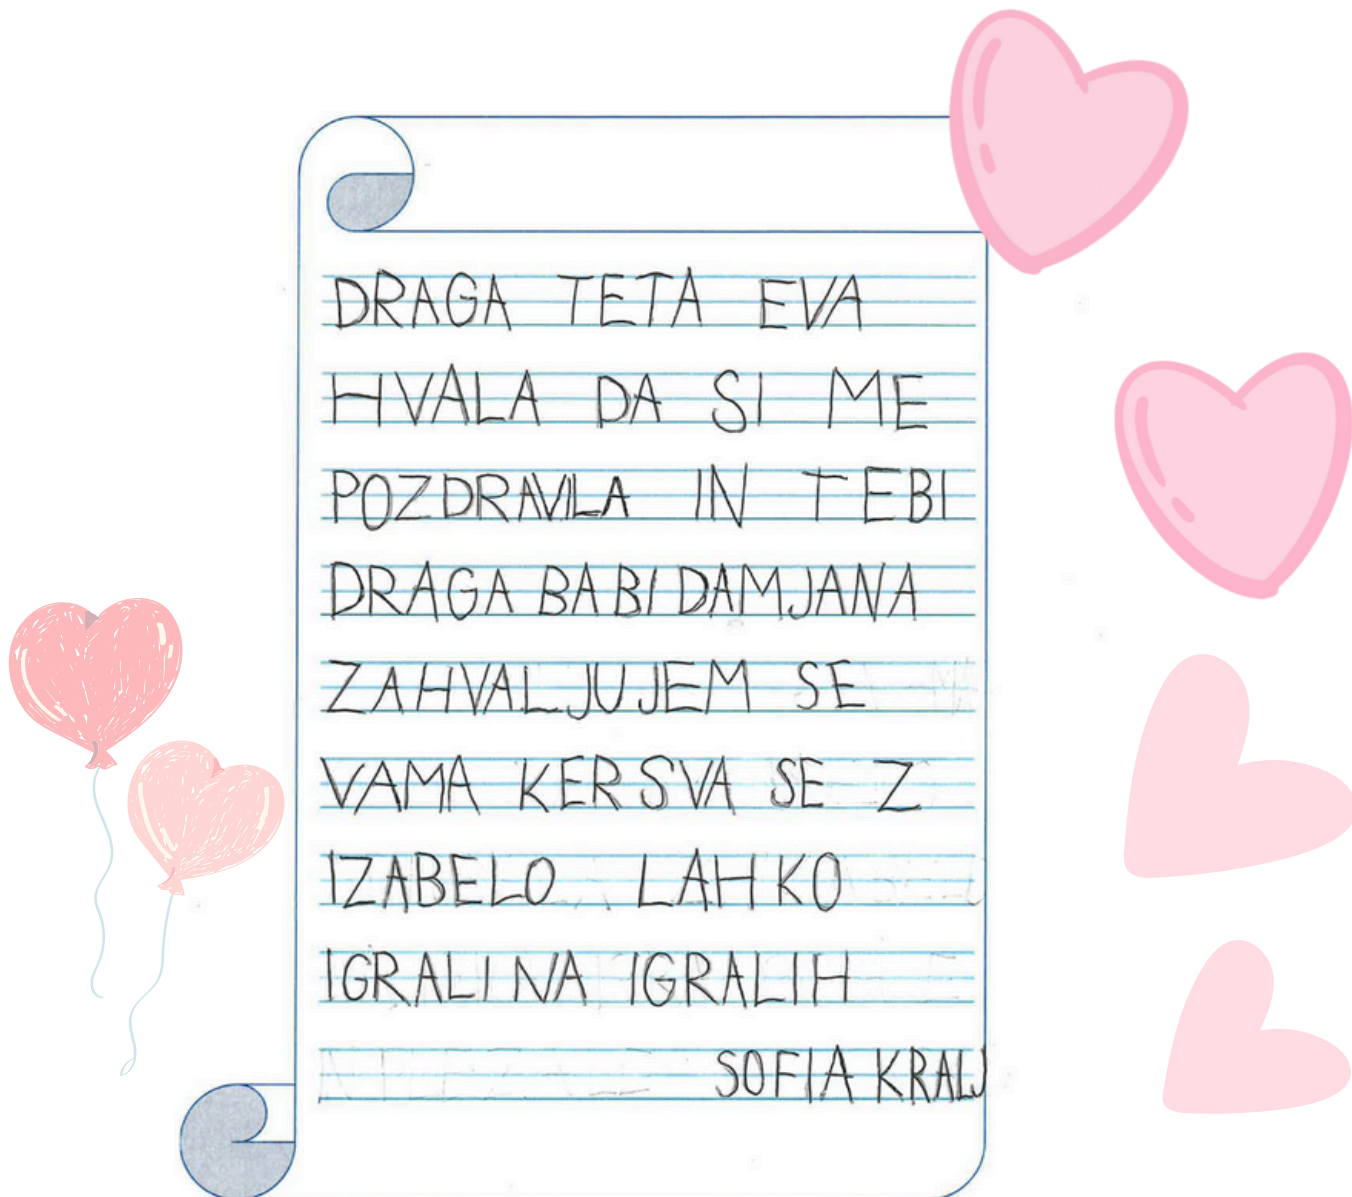 DRAGA TETA EVA
HVALA DA SI ME
POZDRAVILA IN TEBI
DRAGA BABI DAMJANA
ZAHVALJUJEM SE
VAMA KER SVA SE Z
IZABELO LAHKO
IGRALI NA IGRALIH
SOFIA KRALJ